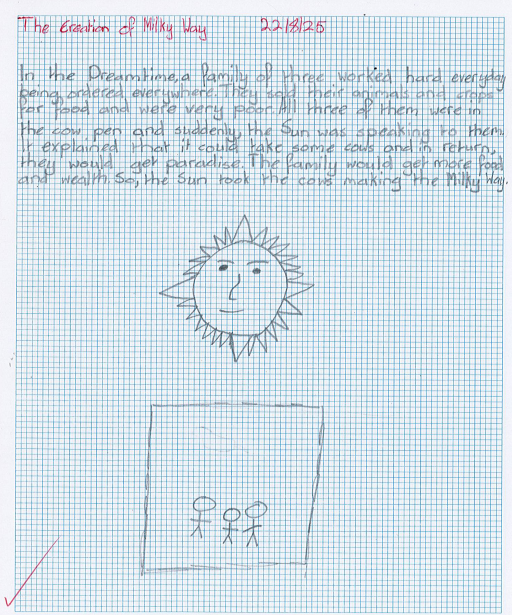 The Creation of Milky Way 22/8/25
In the Dreamtime, a family of three worked hard everyday
being ordered everywhere. They sold their animals and crops
for food and were very poor. All three of them were in
the cow pen and suddenly, the Sun was speaking to them.
It explained that it could take some cows and in return,
they would get paradise. The family would get more food
and wealth. So, the Sun took the cows making the Milky Way.